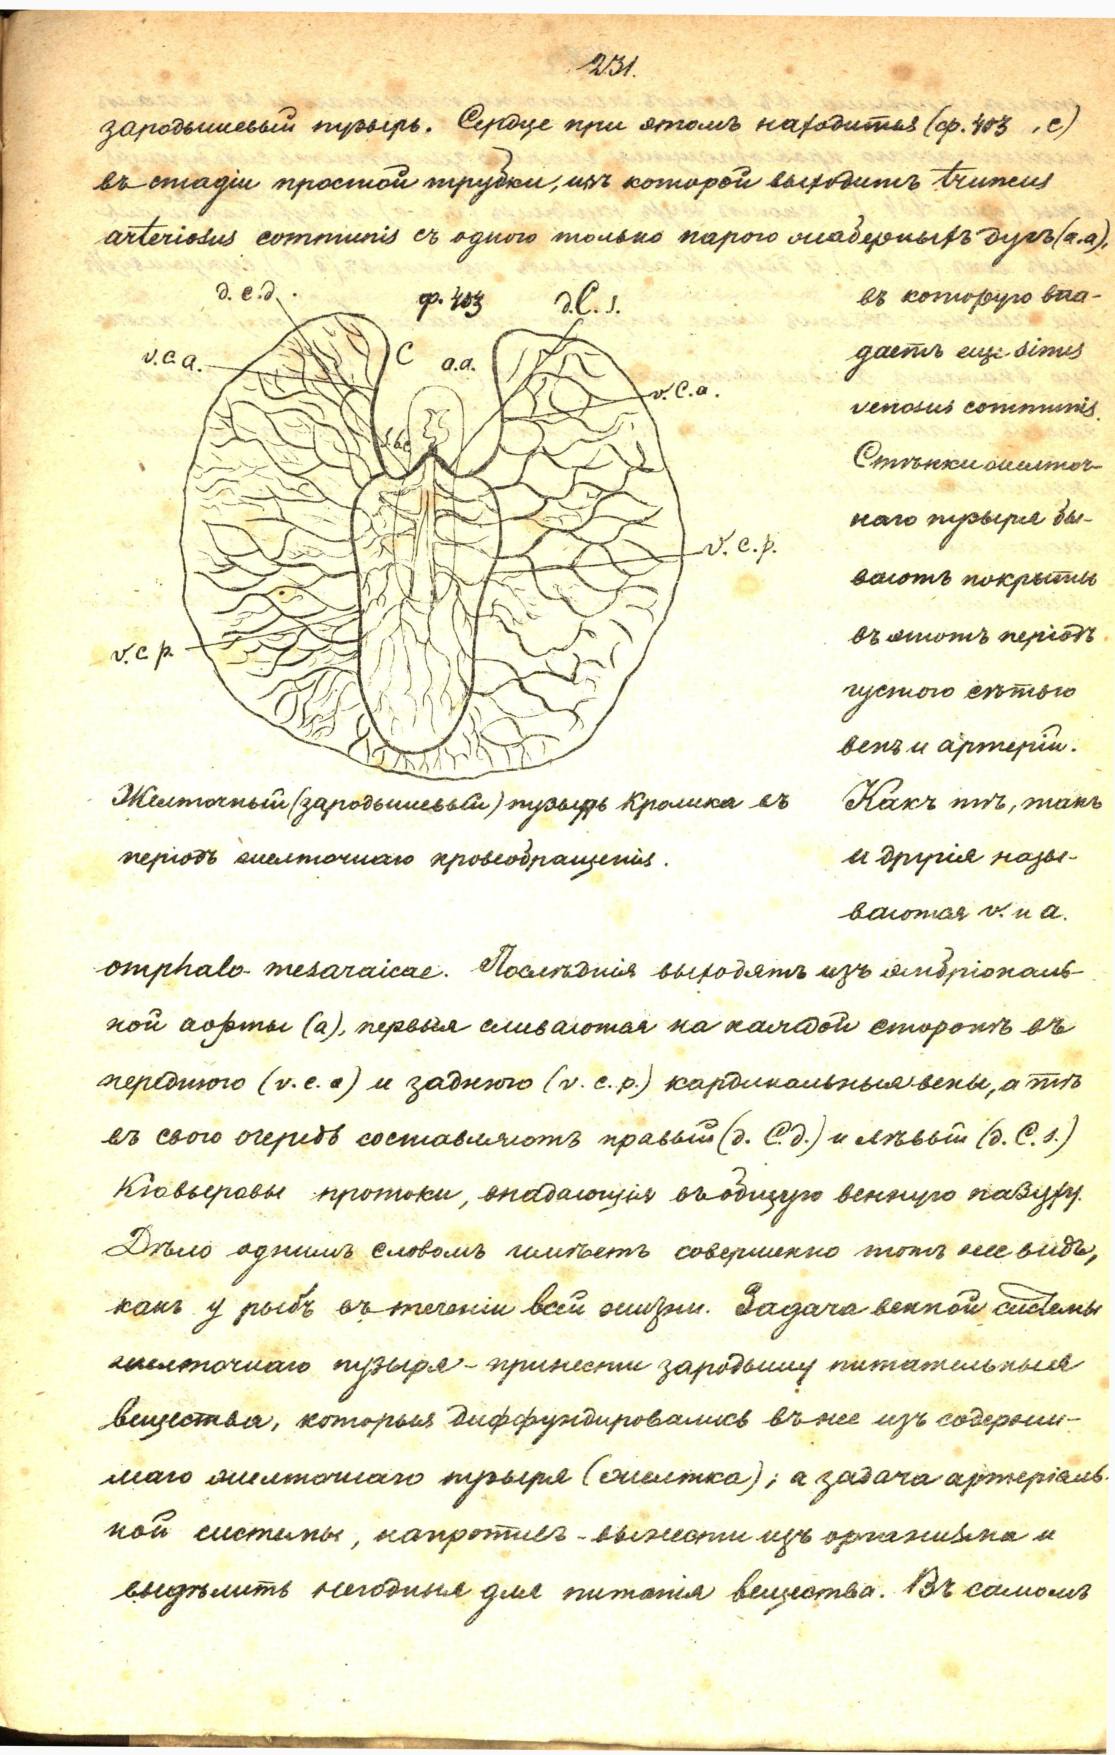 231.
зародышевый пузырь. Сердце при этомъ находится (ф. 403, c)
въ стадіи простой трубки, изъ которой выходитъ truncus
arteriosus communis съ одною только парою жаберныхъ дугъ (a.a),
d. c. d.
ф. 403
d. C. s.
v. c. a.
C
a.a.
v. c. a.
v. c. p.
v. c. p.
въ которую впа-
даетъ еще sinus
venosus communis.
Стѣнки желточ-
наго пузыря бы-
ваютъ покрыты
въ этотъ періодъ
густою сѣтью
венъ и артерій.
Какъ тѣ, такъ
и другія назы-
ваются v. и a.
Желточный (зародышевый) пузырь Кролика въ
періодъ желточнаго кровеобращенія.
omphalo-mesaraicae. Послѣднія выходятъ изъ эмбріональ-
ной аорты (a), первыя сливаются на каждой сторонѣ въ
переднюю (v. c. a) и заднюю (v. c. p.) кардинальныя вены, а тѣ
въ свою очередь составляютъ правый (d. C. d.) и лѣвый (d. C. s.)
Кювьеровы протоки, впадающія въ общую венную пазуху.
Дѣло однимъ словомъ имѣетъ совершенно тотъ же видъ,
какъ у рыбъ въ теченіи всей жизни. Задача венной системы
желточнаго пузыря - принести зародышу питательныя
вещества, которыя диффундировались въ нее изъ содержи-
маго желточнаго пузыря (желтка); а задача артеріаль-
ной системы, напротивъ - вынести изъ организма и
выдѣлить негодныя для питанія вещества. Въ самомъ